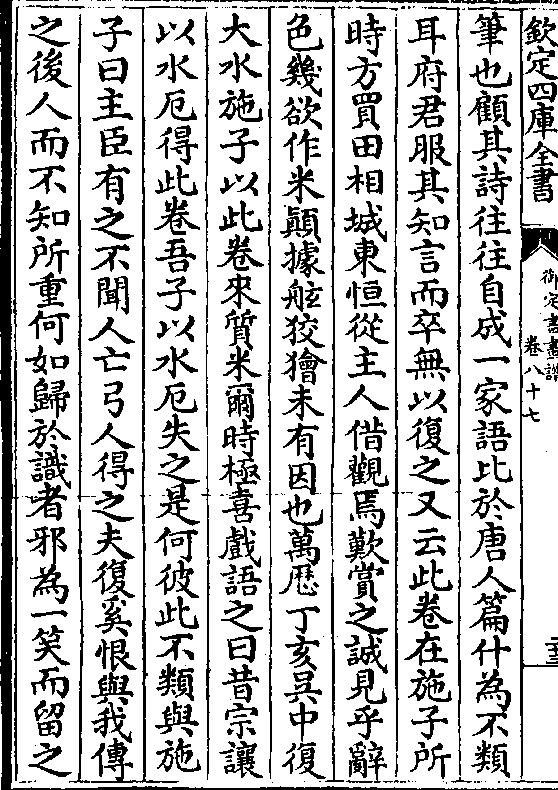 欽定四庫全書
御定書畫譜
卷八十七
筆也顧其詩往往自成一家語比於唐人篇什為不類
耳府君服其知言而卒無以復之又云此卷在施子所
時方買田相城東恒從主人借觀焉歎賞之誠見乎辭
色幾欲作米顛據舷狡獪未有因也萬厯丁亥吴中復
大水施子以此卷來質米爾時極喜戲語之曰昔宗讓
以水厄得此卷吾子以水厄失之是何彼此不類與施
子曰主臣有之不聞人亡弓人得之夫復奚恨與我傳
之後人而不知所重何如歸於識者邪為一笑而留之